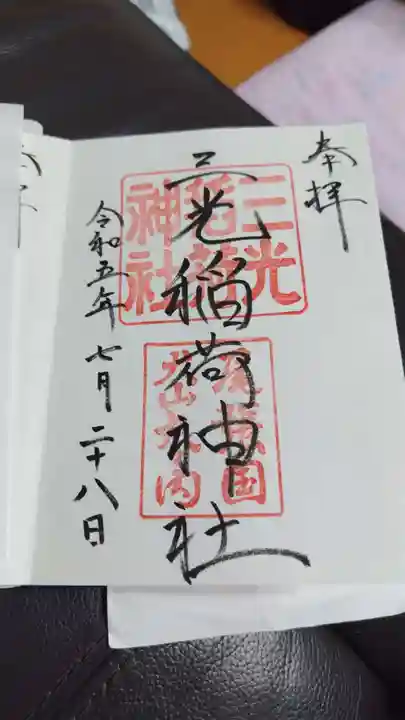 奉拝
三光稲荷神社
三光
稲荷
神社
尾張国
犬山城内
令和五年七月二十八日